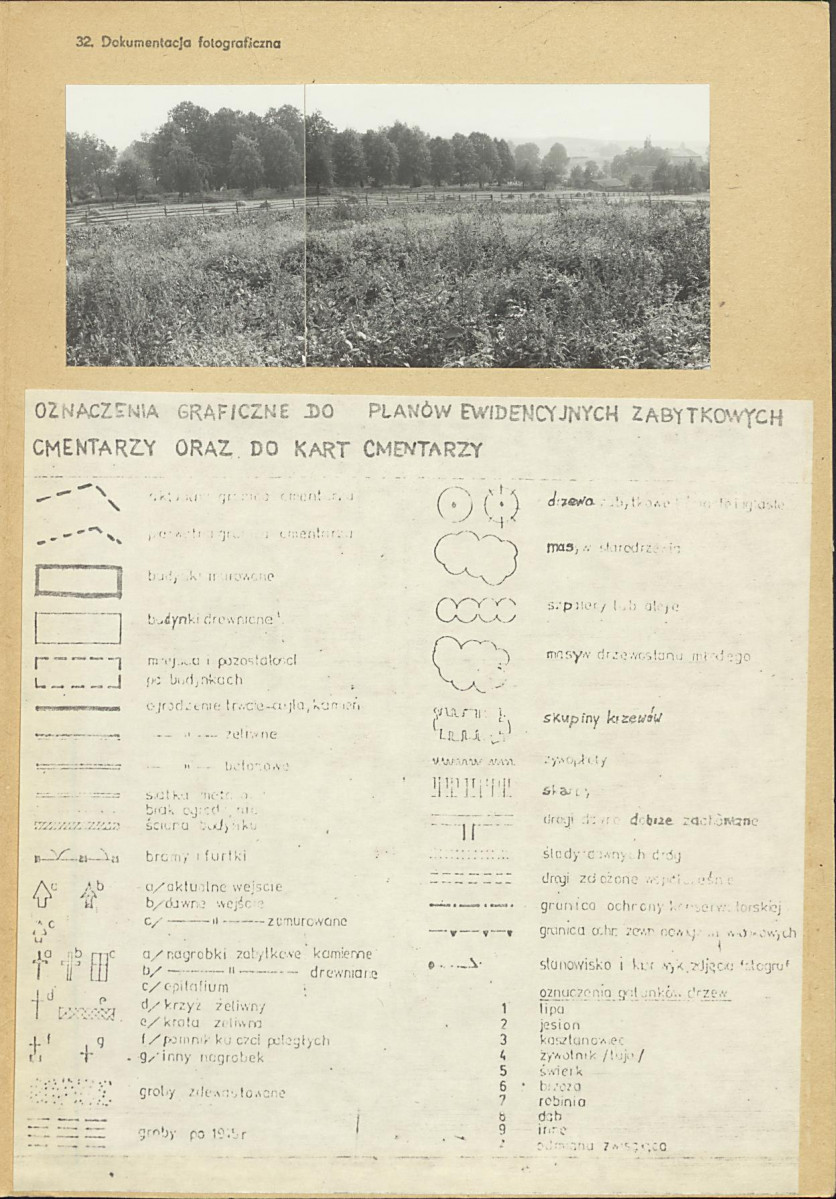 32. Dokumentacja fotograficzna
OZNACZENIA GRAFICZNE DO PLANÓW EWIDENCYJNYCH ZABYTKOWYCH
CMENTARZY ORAZ DO KART CMENTARZY
granica cmentarza
cmentarza
budynki murowane
budynki drewniane
miejsca i pozostałości
po budynkach
ogrodzenie trwałe-cegła, kamień
— " — żeliwne
— " — betonowe
siatka
brak ogrodzenia
ściana budynku
bramy i furtki
a b
a/aktualne wejście
b/dawne wejście
c
c/ — " — zamurowane
a b c
a/nagrobki zabytkowe kamienne
b/ — " — drewniane
c/epitafium
d e
d/krzyż żeliwny
e/krata żeliwna
f g
f/pomnik ku czci poległych
g/inny nagrobek
groby zdewastowane
groby po 1945r
drzewa
masyw starodrzewia
szpalery lub aleje
masyw drzewostanu młodego
skupiny krzewów
żywopłoty
skarpy
drogi dobrze zachowane
ślady dawnych dróg
drogi założone współcześnie
granica ochrony konserwatorskiej
granica
stanowisko i kier. wyk. zdjęcia fotograf
oznaczenia gatunków drzew
1 lipa
2 jesion
3 kasztanowiec
4 żywotnik /tuja/
5 świerk
6 brzoza
7 robinia
8 dąb
9 inne
odmiana zwisająca